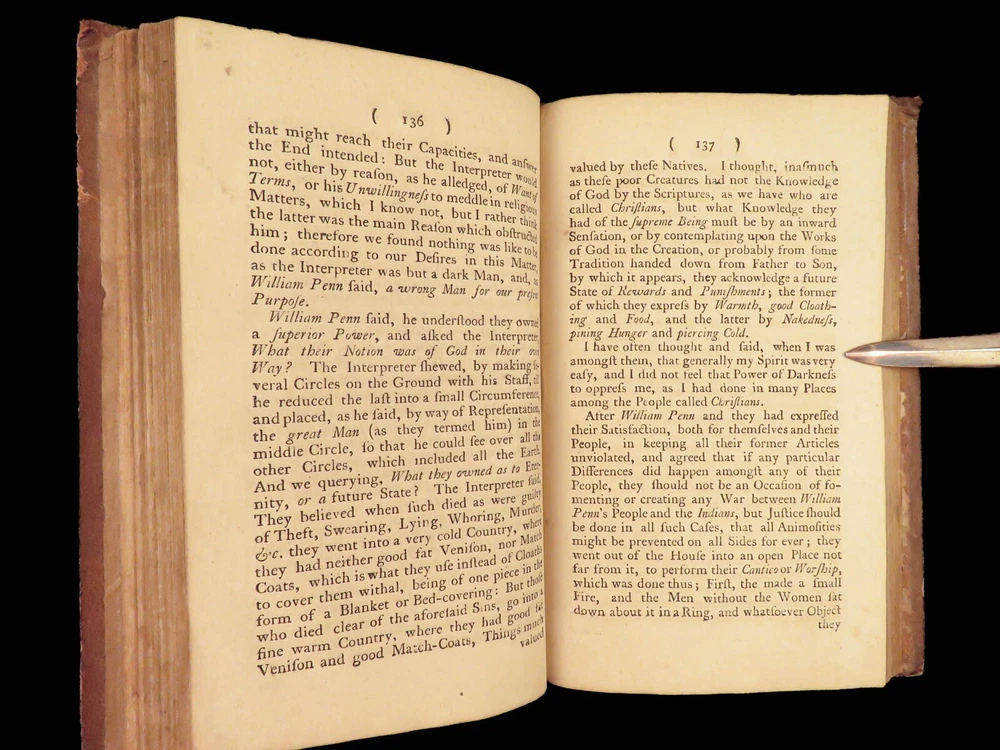 ( 136 )
that might reach their Capacities, and anſwer
the End intended: But the Interpreter would
not, either by reaſon, as he alledged, of Want of
Terms, or his Unwillingneſs to meddle in religious
Matters, which I know not, but I rather think
the latter was the main Reaſon which obſtructed
him; therefore we found nothing was like to be
done according to our Deſires in this Matter,
as the Interpreter was but a dark Man, and, as
William Penn ſaid, a wrong Man for our preſent
Purpoſe.
William Penn ſaid, he underſtood they owned
a ſuperior Power, and aſked the Interpreter,
What their Notion was of God in their own
Way? The Interpreter ſhewed, by making ſe-
veral Circles on the Ground with his Staff, till
he reduced the laſt into a ſmall Circumference,
and placed, as he ſaid, by way of Repreſentation,
the great Man (as they termed him) in the
middle Circle, ſo that he could ſee over all the
other Circles, which included all the Earth.
And we querying, What they owned as to Eter-
nity, or a future State? The Interpreter ſaid,
They believed when ſuch died as were guilty
of Theft, Swearing, Lying, Whoring, Murder,
&c. they went into a very cold Country, where
they had neither good fat Veniſon, nor Match
Coats, which is what they uſe inſtead of Cloaths
to cover them withal, being of one piece in the
form of a Blanket or Bed-covering: But thoſe
who died clear of the aforeſaid Sins, go into a
fine warm Country, where they had good fat
Veniſon and good Match-Coats, Things much
valued
( 137 )
valued by theſe Natives. I thought, inaſmuch
as theſe poor Creatures had not the Knowledge
of God by the Scriptures, as we have who are
called Chriſtians, but what Knowledge they
had of the ſupreme Being muſt be by an inward
Senſation, or by contemplating upon the Works
of God in the Creation, or probably from ſome
Tradition handed down from Father to Son,
by which it appears, they acknowledge a future
State of Rewards and Puniſhments; the former
of which they expreſs by Warmth, good Cloath-
ing and Food, and the latter by Nakedneſs,
pining Hunger and piercing Cold.
I have often thought and ſaid, when I was
amongſt them, that generally my Spirit was very
eaſy, and I did not feel that Power of Darkneſs
to oppreſs me, as I had done in many Places
among the People called Chriſtians.
After William Penn and they had expreſſed
their Satisfaction, both for themſelves and their
People, in keeping all their former Articles
unviolated, and agreed that if any particular
Differences did happen amongſt any of their
People, they ſhould not be an Occaſion of fo-
menting or creating any War between William
Penn's People and the Indians, but Juſtice ſhould
be done in all ſuch Caſes, that all Animoſities
might be prevented on all Sides for ever; they
went out of the Houſe into an open Place not
far from it, to perform their Cantico or Worſhip,
which was done thus; Firſt, the made a ſmall
Fire, and the Men without the Women ſat
down about it in a Ring, and whatſoever Object
they